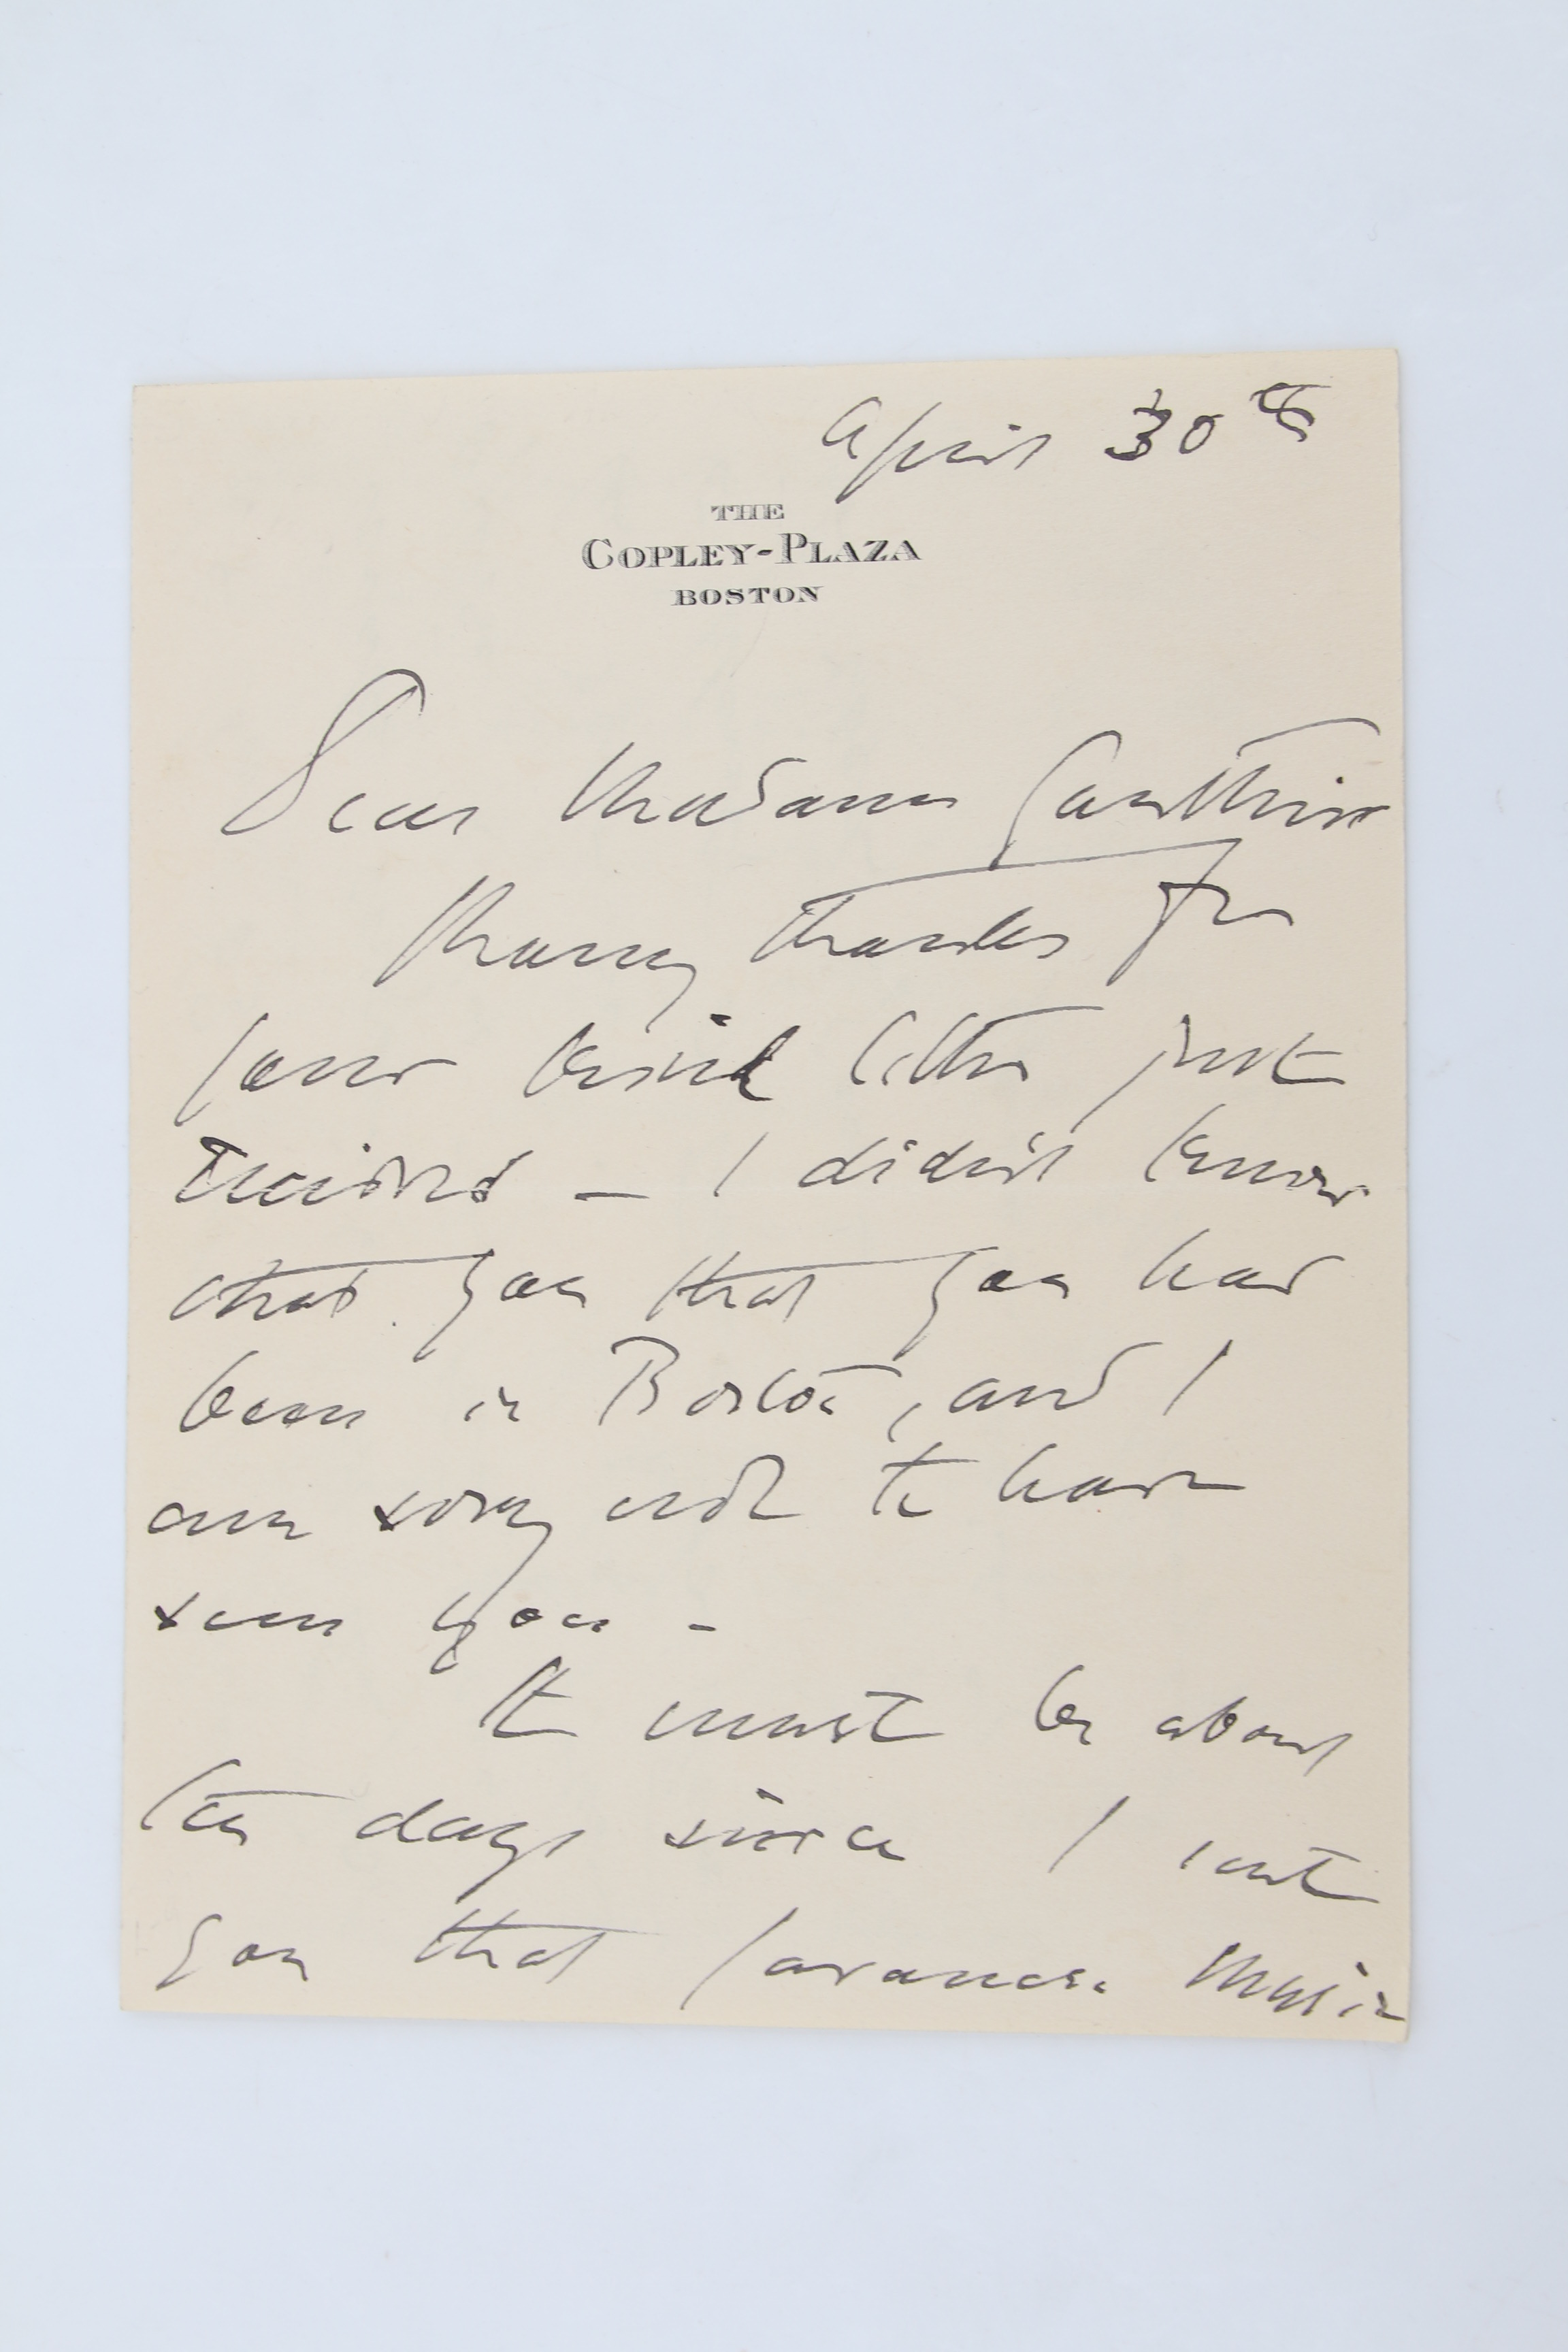 April 30th
THE
COPLEY-PLAZA
BOSTON
Dear Madame Gauthier
Many thanks for
your kind letter just
received — I didn't know
that you that you had
been in Boston, and I
am sorry not to have
seen you -
It must be about
ten days since I sent
you that Javanese Music